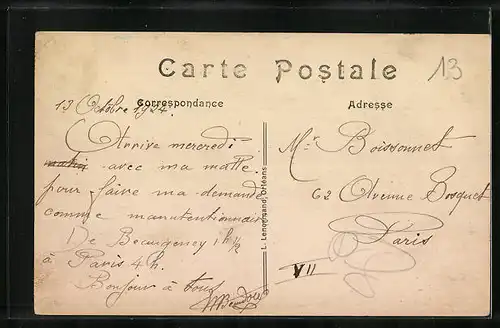 Carte Postale
13
13 Octobre 1924.
Correspondance
Adresse
Arrive mercredi
matin avec ma malle
pour faire ma demande
comme manutentionnaire
De Beaugency 1h 1/2
à Paris 4h.
Bonjour à tous
L. Lenormand, Orléans
Mr Boissonnet
62 Avenue Bosquet
Paris
VII